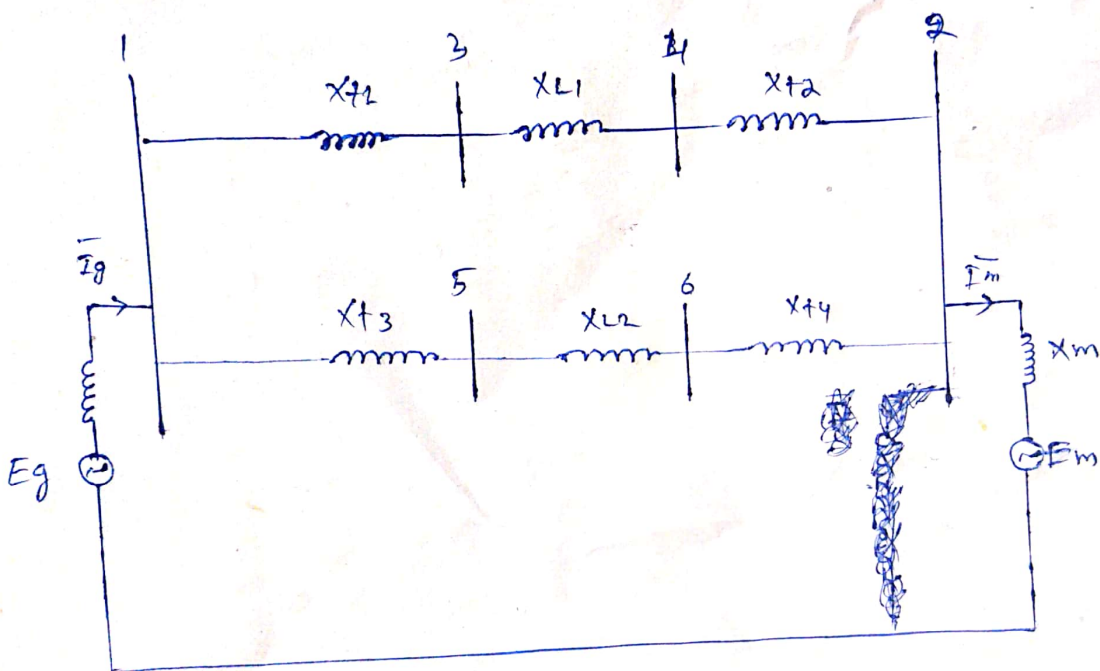 1 3 4 2
Xt1 XL1 Xt2
Ig 5 6 Im
Xt3 XL2 Xt4
Xm
Eg Em